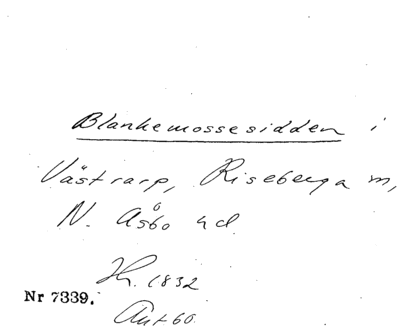 Blankemossesidden i
Västrarp, Riseberga m,
N. Åsbo hd.
Hr. 1832
Nr 7339.
Aut 60